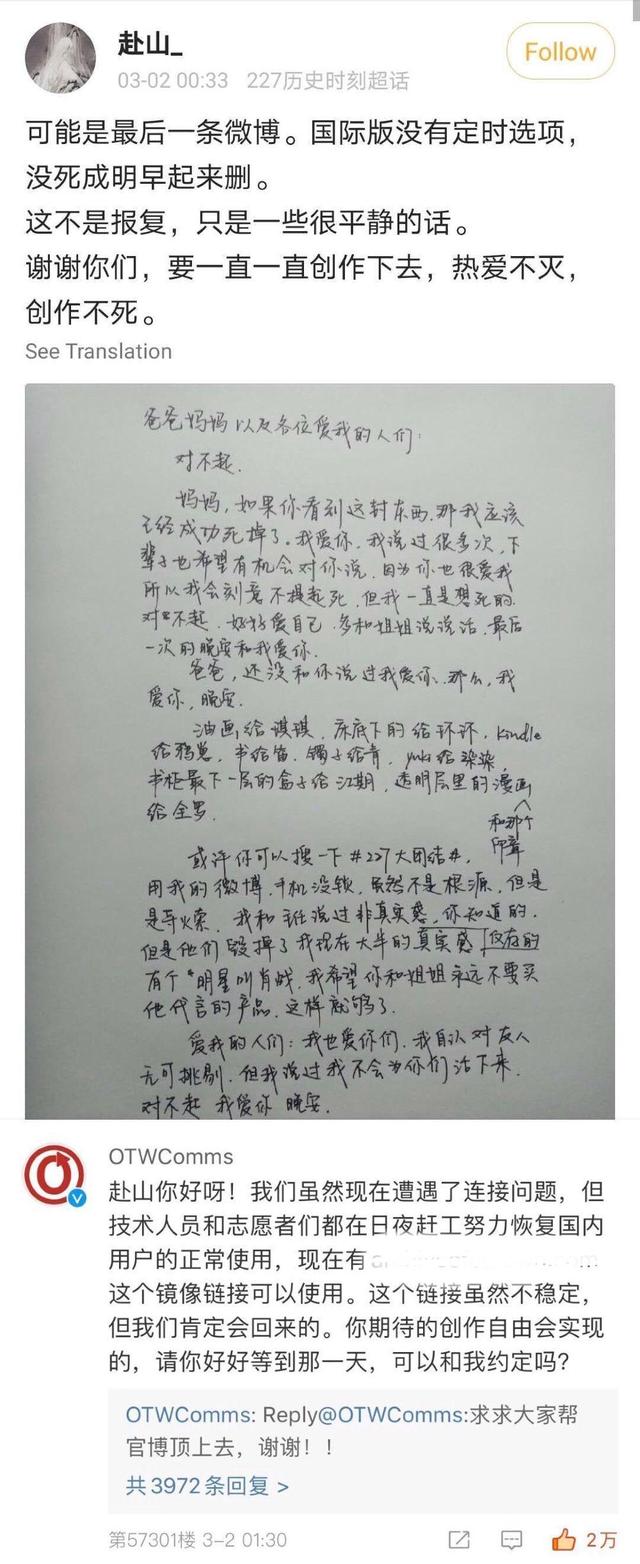 赴山_
03-02 00:33 227历史时刻超话
Follow
可能是最后一条微博。国际版没有定时选项，
没死成明早起来删。
这不是报复，只是一些很平静的话。
谢谢你们，要一直一直创作下去，热爱不灭，
创作不死。
See Translation
爸爸妈妈以及各位爱我的人们：
对不起.
妈妈，如果你看到这封东西.那我应该
已经成功死掉了。我爱你.我说过很多次，下
辈子也希望有机会对你说.因为你也很爱我
所以我会刻意不提起死.但我一直是想死的.
对不起.好好爱自己.多和姐姐说说话.最后
一次的晚安和我爱你.
爸爸，还没和你说过我爱你.那么，我
爱你，晚安.
油画给琪琪.床底下的给环环.Kindle
给鸦崽.书给笛.镯子给青.yuki给染染，
书柜最下一层的盒子给江期，透明层里的漫画
和那个
印章
给全罗.
或许你可以搜一下#227大团结#，
用我的微博.手机没锁.虽然不是根源，但是
是导火索.我和班说过非真实感，你知道的.
但是他们毁掉了我现在大半的真实感 仅有的
有个"明星叫肖战.我希望你和姐姐永远不要买
他代言的产品.这样就够了.
爱我的人们：我也爱你们.我自认对友人
无可挑剔.但我说过我不会为你们活下来.
对不起 我爱你 晚安.
OTWComms
赴山你好呀！我们虽然现在遭遇了连接问题，但
技术人员和志愿者们都在日夜赶工努力恢复国内
用户的正常使用，现在有
这个镜像链接可以使用。这个链接虽然不稳定，
但我们肯定会回来的。你期待的创作自由会实现
的，请你好好等到那一天，可以和我约定吗？
OTWComms: Reply@OTWComms:求求大家帮
官博顶上去，谢谢！！
共3972条回复 >
第57301楼 3-2 01:30
2万